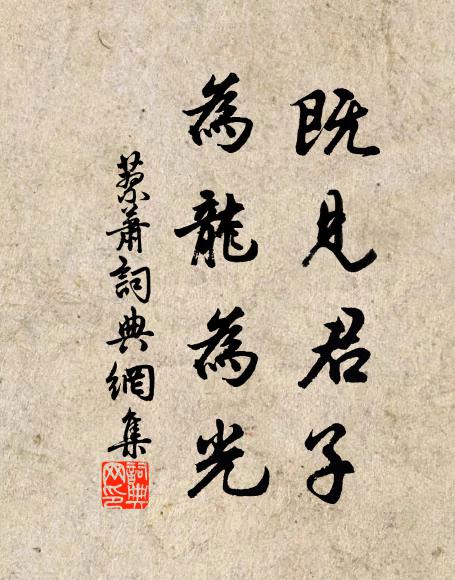 既見君子
為龍為光
蓼蕭詞典網集
詞典網印